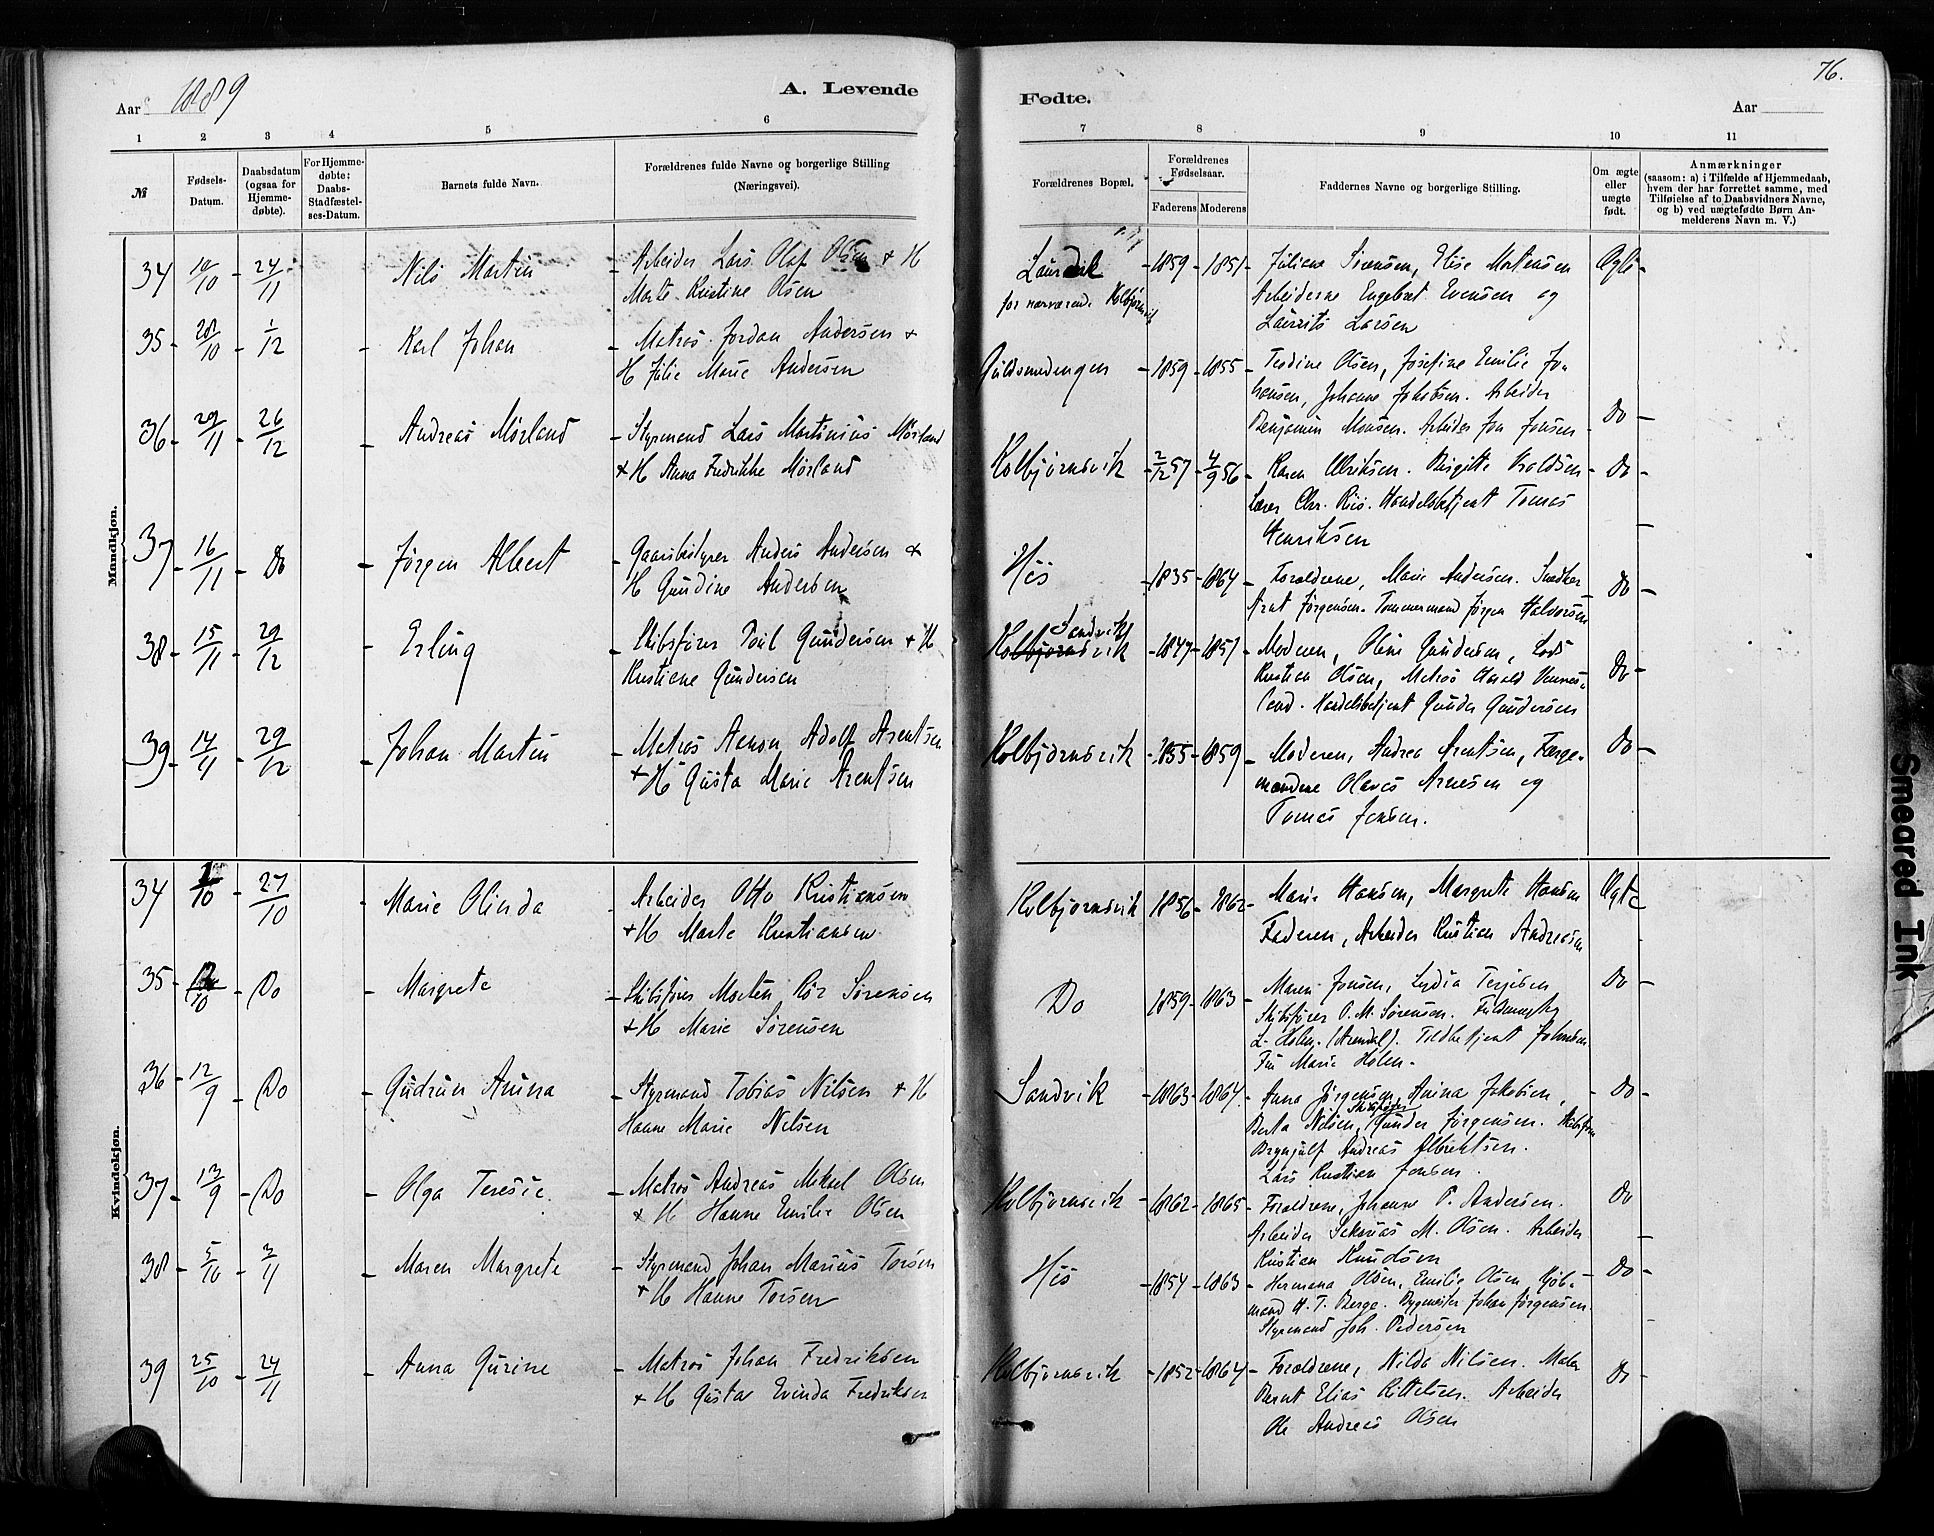 Aar 1889
A. Levende
1 2 3 4 5 6
№
Fødsels-Datum.
Daabsdatum (ogsaa for Hjemme-døbte).
For Hjemme-døbte: Daabs-Stadfæstel-ses-Datum.
Barnets fulde Navn.
Forældrenes fulde Navne og borgerlige Stilling
(Næringsvei).
Mandkjøn.
34 10/10 - 24/11 Nils Martin - Arbeider Lars Olaf Olsen + H
Marte Kristine Olsen
35 - 28/10 - 1/12 - Karl Johan - Matros Jordan Andersen +
H Julie Marie Andersen
36 - 29/11 - 26/12 - Andreas Mørland - Styrmand Lars Martinius Mørland
+ H Anna Fredrikke Mørland
37 - 16/11 - Do - Jørgen Albert - Gaarsbestyrer Anders Andersen +
H Gundine Andersen
38 - 15/11 - 29/12 - Erling - Skibsfører Poul Gundersen + H
Kristiene Gundersen
39 - 14/11 - 29/12 - Johan Martin - Matros Aanon Adolf Arentsen
+ H Gusta Marie Arentsen
Kvindekjøn.
34 1/10 - 27/10 - Marie Olinda - Arbeider Otto Kristiansen
+ H Marte Kristiansen
35 - /10 - Do - Margrete - Skibsfører Morten Sørensen
+ H Marie Sørensen
36 - 12/9 - Do - Gudrun Anina - Styrmand Tobias Nilsen + H
Hanne Marie Nilsen
37 - 13/9 - Do - Olga Teresie - Matros Andreas Mikael Olsen
+ H Hanne Emilie Olsen
38 - 5/10 - 3/11 - Maren Margrete - Styrmand Johan Marius Torsen
+ H Hanne Torsen
39 25/10 - 24/11 - Anna Gurine - Matros Johan Fredriksen
+ H Gustav Evinda Fredriksen
76.
Fødte.
Aar
7 8 9 10 11
Forældrenes Bopæl.
Forældrenes Fødselsaar.
Faderens Moderens
Faddernes Navne og borgerlige Stilling.
Om ægte eller uægte født.
Anmærkninger
(saasom: a) i Tilfælde af Hjemmedaab,
hvem der har forrettet samme, med
Tilføielse af to Daabsvidners Navne,
og b) ved uægtefødte Børn An-
melderens Navn m. V.)
Laurvik - 1859 - 1851 - Juliane Sørensen, Elise Mortensen Ægte -
for nærværende Kolbjørnsvik Arbeiderne Engebret Evensen og
Laurits Larsen
Guldsmedengen - 1859 - 1855 - Teodine Olsen, Josefine Emilie Jo-
hansen, Johanne Jakobsen. Arbeider
Benjamin Monsen. Arbeider Jon Jonsen - Do -
Kolbjørnsvik - 2/12 57 - 4/9 56 - Karen Ulriksen. Birgitte - Do -
Lærer Chr. Riis. Handelsbetjent Tomas
Henriksen
His - 1835 - 1864 - Forældrene, Marie Andersen. Snedker - Do -
Arnt Jørgensen. Tømmermand Jørgen Halvorsen
Sandvik
Kolbjørnsvik - 1847 - 1851 - Moderen, Oline Gundersen, Lods
Kristian Olsen, Matros Harald Vennes- Do -
land. Handelsbetjent Gunder Gundersen
Kolbjørnsvik - 1855 - 1859 - Moderen, Andrea Arentsen, Færge- Do -
mændene Olaves Arnesen og
Tomas Jensen.
Kolbjørnsvik 1856 - 1862 - Marie Hansen, Margrete Hansen Ægte
Faderen, Arbeider Kristian Andreasen
Do 1859 - 1863 - Maren Jonsen, Lydia Terjesen Do -
Skibsfører O. M. Sørensen. Fuldmægtig
L. Holm. (Arendal). Toldbetjent Johnsen
Fru Marie Holm.
Sandvik - 1863 - 1864 - Anna Jørgensen, Anina Jakobsen, - Do -
Berta Nilsen, Skibsfører Gunder Jørgensen. Skibsfører
Brynjulf Andreas Albrektsen.
Lars Kristian Jensen.
Kolbjørnsvik - 1862 - 1865 - Forældrene, Johanne P. Andersen. Do
Arbeider Sakarias M. Olsen. Arbeider
Kristian Knudsen
His - 1854 - 1863 - Hermana Olsen, Emilie Olsen, Kjøb- - Do -
mand H. T. Berge. Bygmester Johan Jørgensen.
Styrmand Joh. Pedersen
Kolbjørnsvik - 1852 - 1864 - Forældrene, Nilda Nilsen. Maler Do -
Bernt Elias Kittelsen. Arbeider
Ole Andreas Olsen
Smeared Ink